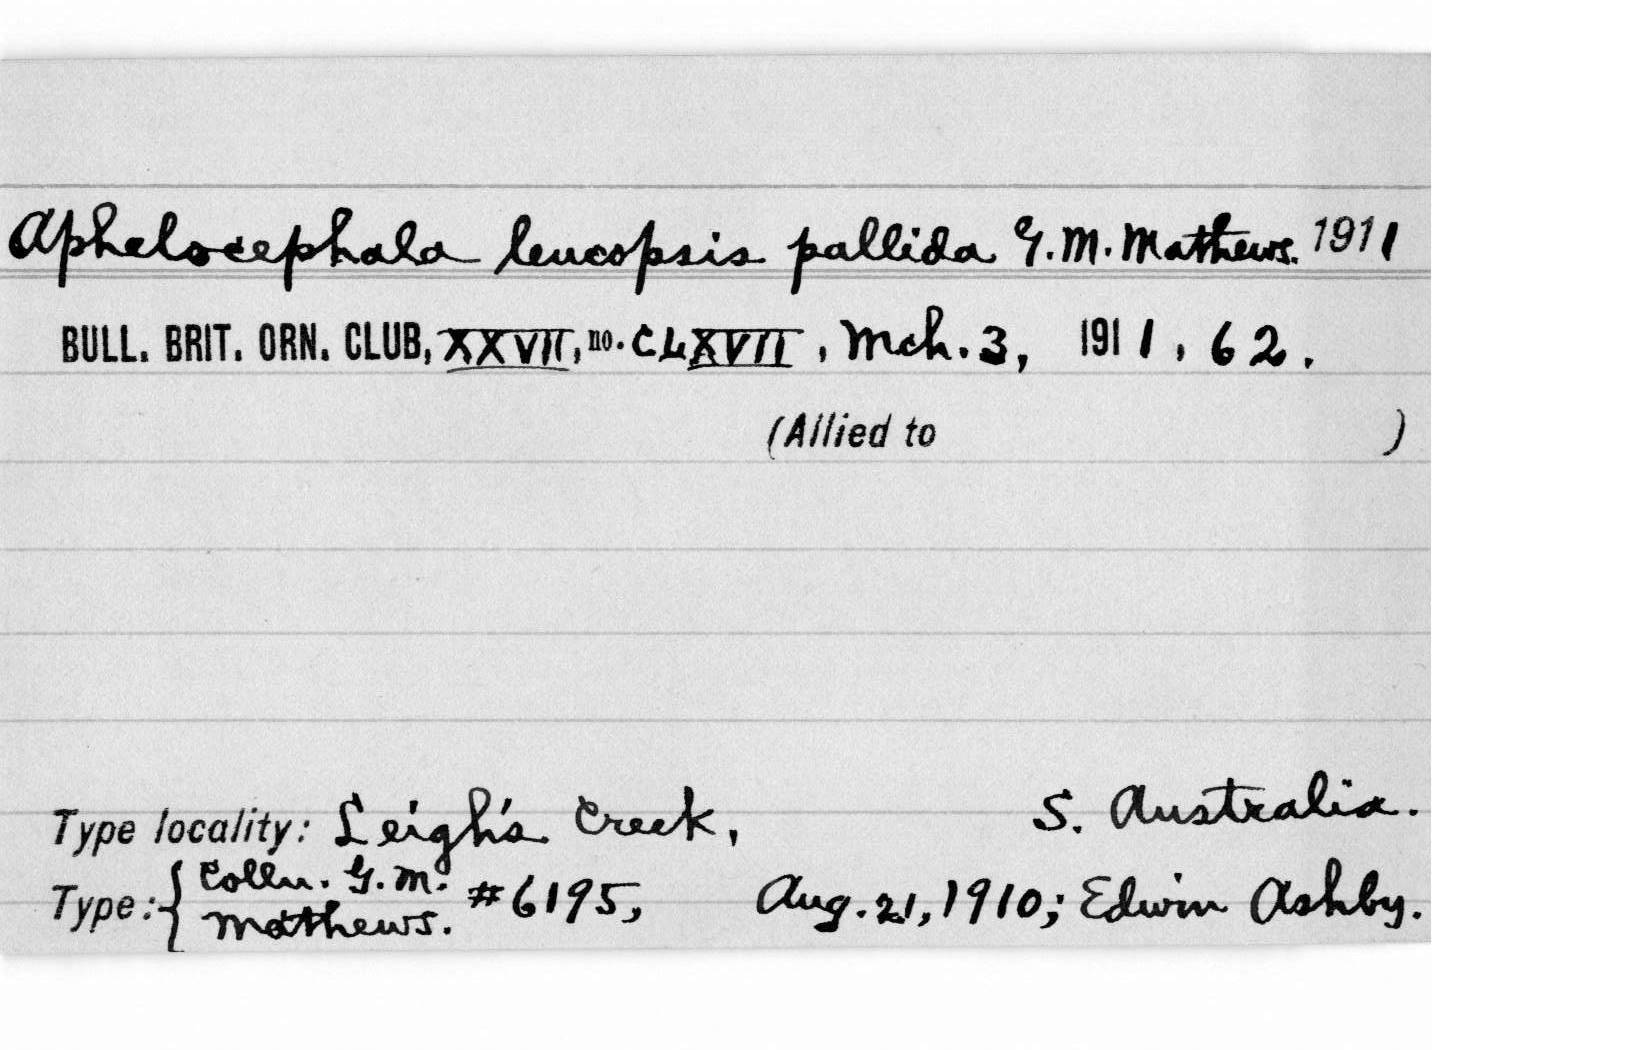 Aphelocephala leucopsis pallida G.M. Mathews. 1911
BULL. BRIT. ORN. CLUB, XXVII, no. CLXVII, Mch. 3, 1911, 62.
(Allied to )
Type locality: Leigh's Creek, S. Australia.
Type: { Colln. G.M. Mathews. #6195, Aug. 21, 1910; Edwin Ashby.